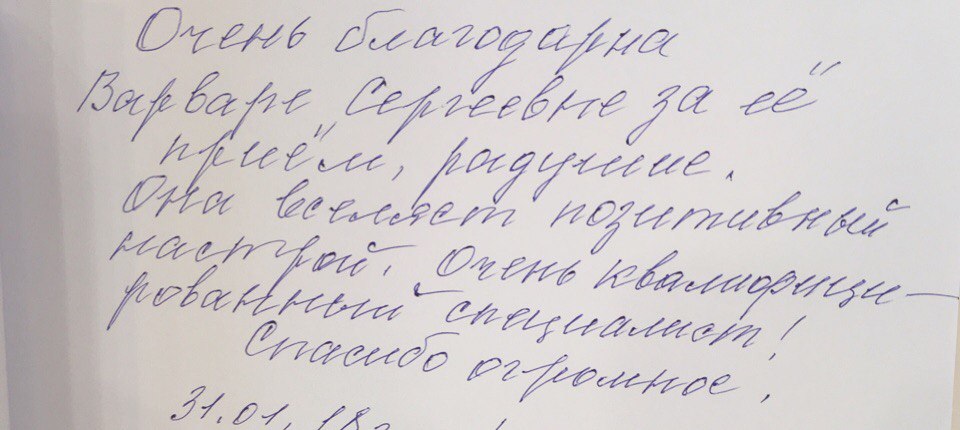 Очень благодарна
Варваре Сергеевне за её
приём, радушие.
Она вселяет позитивный
настрой. Очень квалифици-
рованный специалист!
Спасибо огромное!
31.01.18г